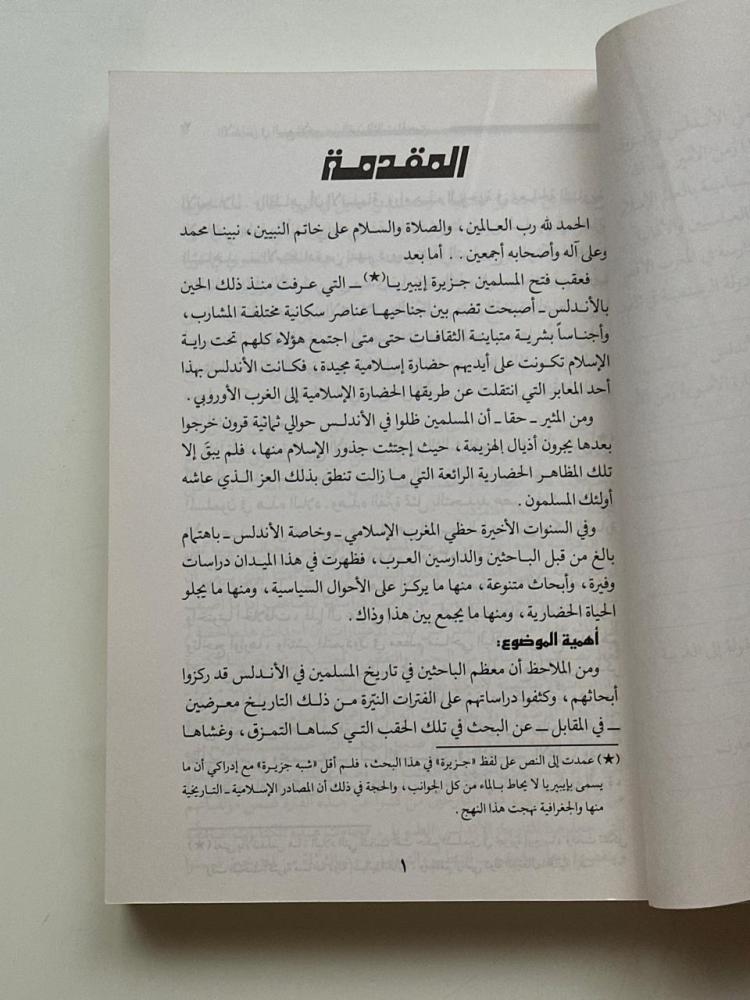 المقدمة
الحمد لله رب العالمين، والصلاة والسلام على خاتم النبيين، نبينا محمد
وعلى آله وأصحابه أجمعين . . أما بعد
فعقب فتح المسلمين جزيرة إيبيريا(★) ــ التي عرفت منذ ذلك الحين
بالأندلس ــ أصبحت تضم بين جناحيها عناصر سكانية مختلفة المشارب،
وأجناساً بشرية متباينة الثقافات حتى متى اجتمع هؤلاء كلهم تحت راية
الإسلام تكونت على أيديهم حضارة إسلامية مجيدة، فكانت الأندلس بهذا
أحد المعابر التي انتقلت عن طريقها الحضارة الإسلامية إلى الغرب الأوروبي .
ومن المثير ــ حقا ــ أن المسلمين ظلوا في الأندلس حوالي ثمانية قرون خرجوا
بعدها يجرون أذيال الهزيمة، حيث إجتثت جذور الإسلام منها، فلم يبقَ إلا
تلك المظاهر الحضارية الرائعة التي ما زالت تنطق بذلك العز الذي عاشه
أولئك المسلمون .
وفي السنوات الأخيرة حظي المغرب الإسلامي ــ وخاصة الأندلس ــ باهتمام
بالغ من قبل الباحثين والدارسين العرب، فظهرت في هذا الميدان دراسات
وفيرة، وأبحاث متنوعة، منها ما يركز على الأحوال السياسية، ومنها ما يجلو
الحياة الحضارية، ومنها ما يجمع بين هذا وذاك .
أهمية الموضوع:
ومن الملاحظ أن معظم الباحثين في تاريخ المسلمين في الأندلس قد ركزوا
أبحاثهم، وكثفوا دراساتهم على الفترات النيّرة من ذلك التاريخ معرضين
ــ في المقابل ــ عن البحث في تلك الحقب التي كساها التمزق، وغشاها
(★) عمدت إلى النص على لفظ «جزيرة» في هذا البحث، فلم أقل «شبه جزيرة» مع إدراكي أن ما
يسمى بإيبيريا لا يحاط بالماء من كل الجوانب، والحجة في ذلك أن المصادر الإسلامية ــ التاريخية
منها والجغرافية نهجت هذا النهج .
١